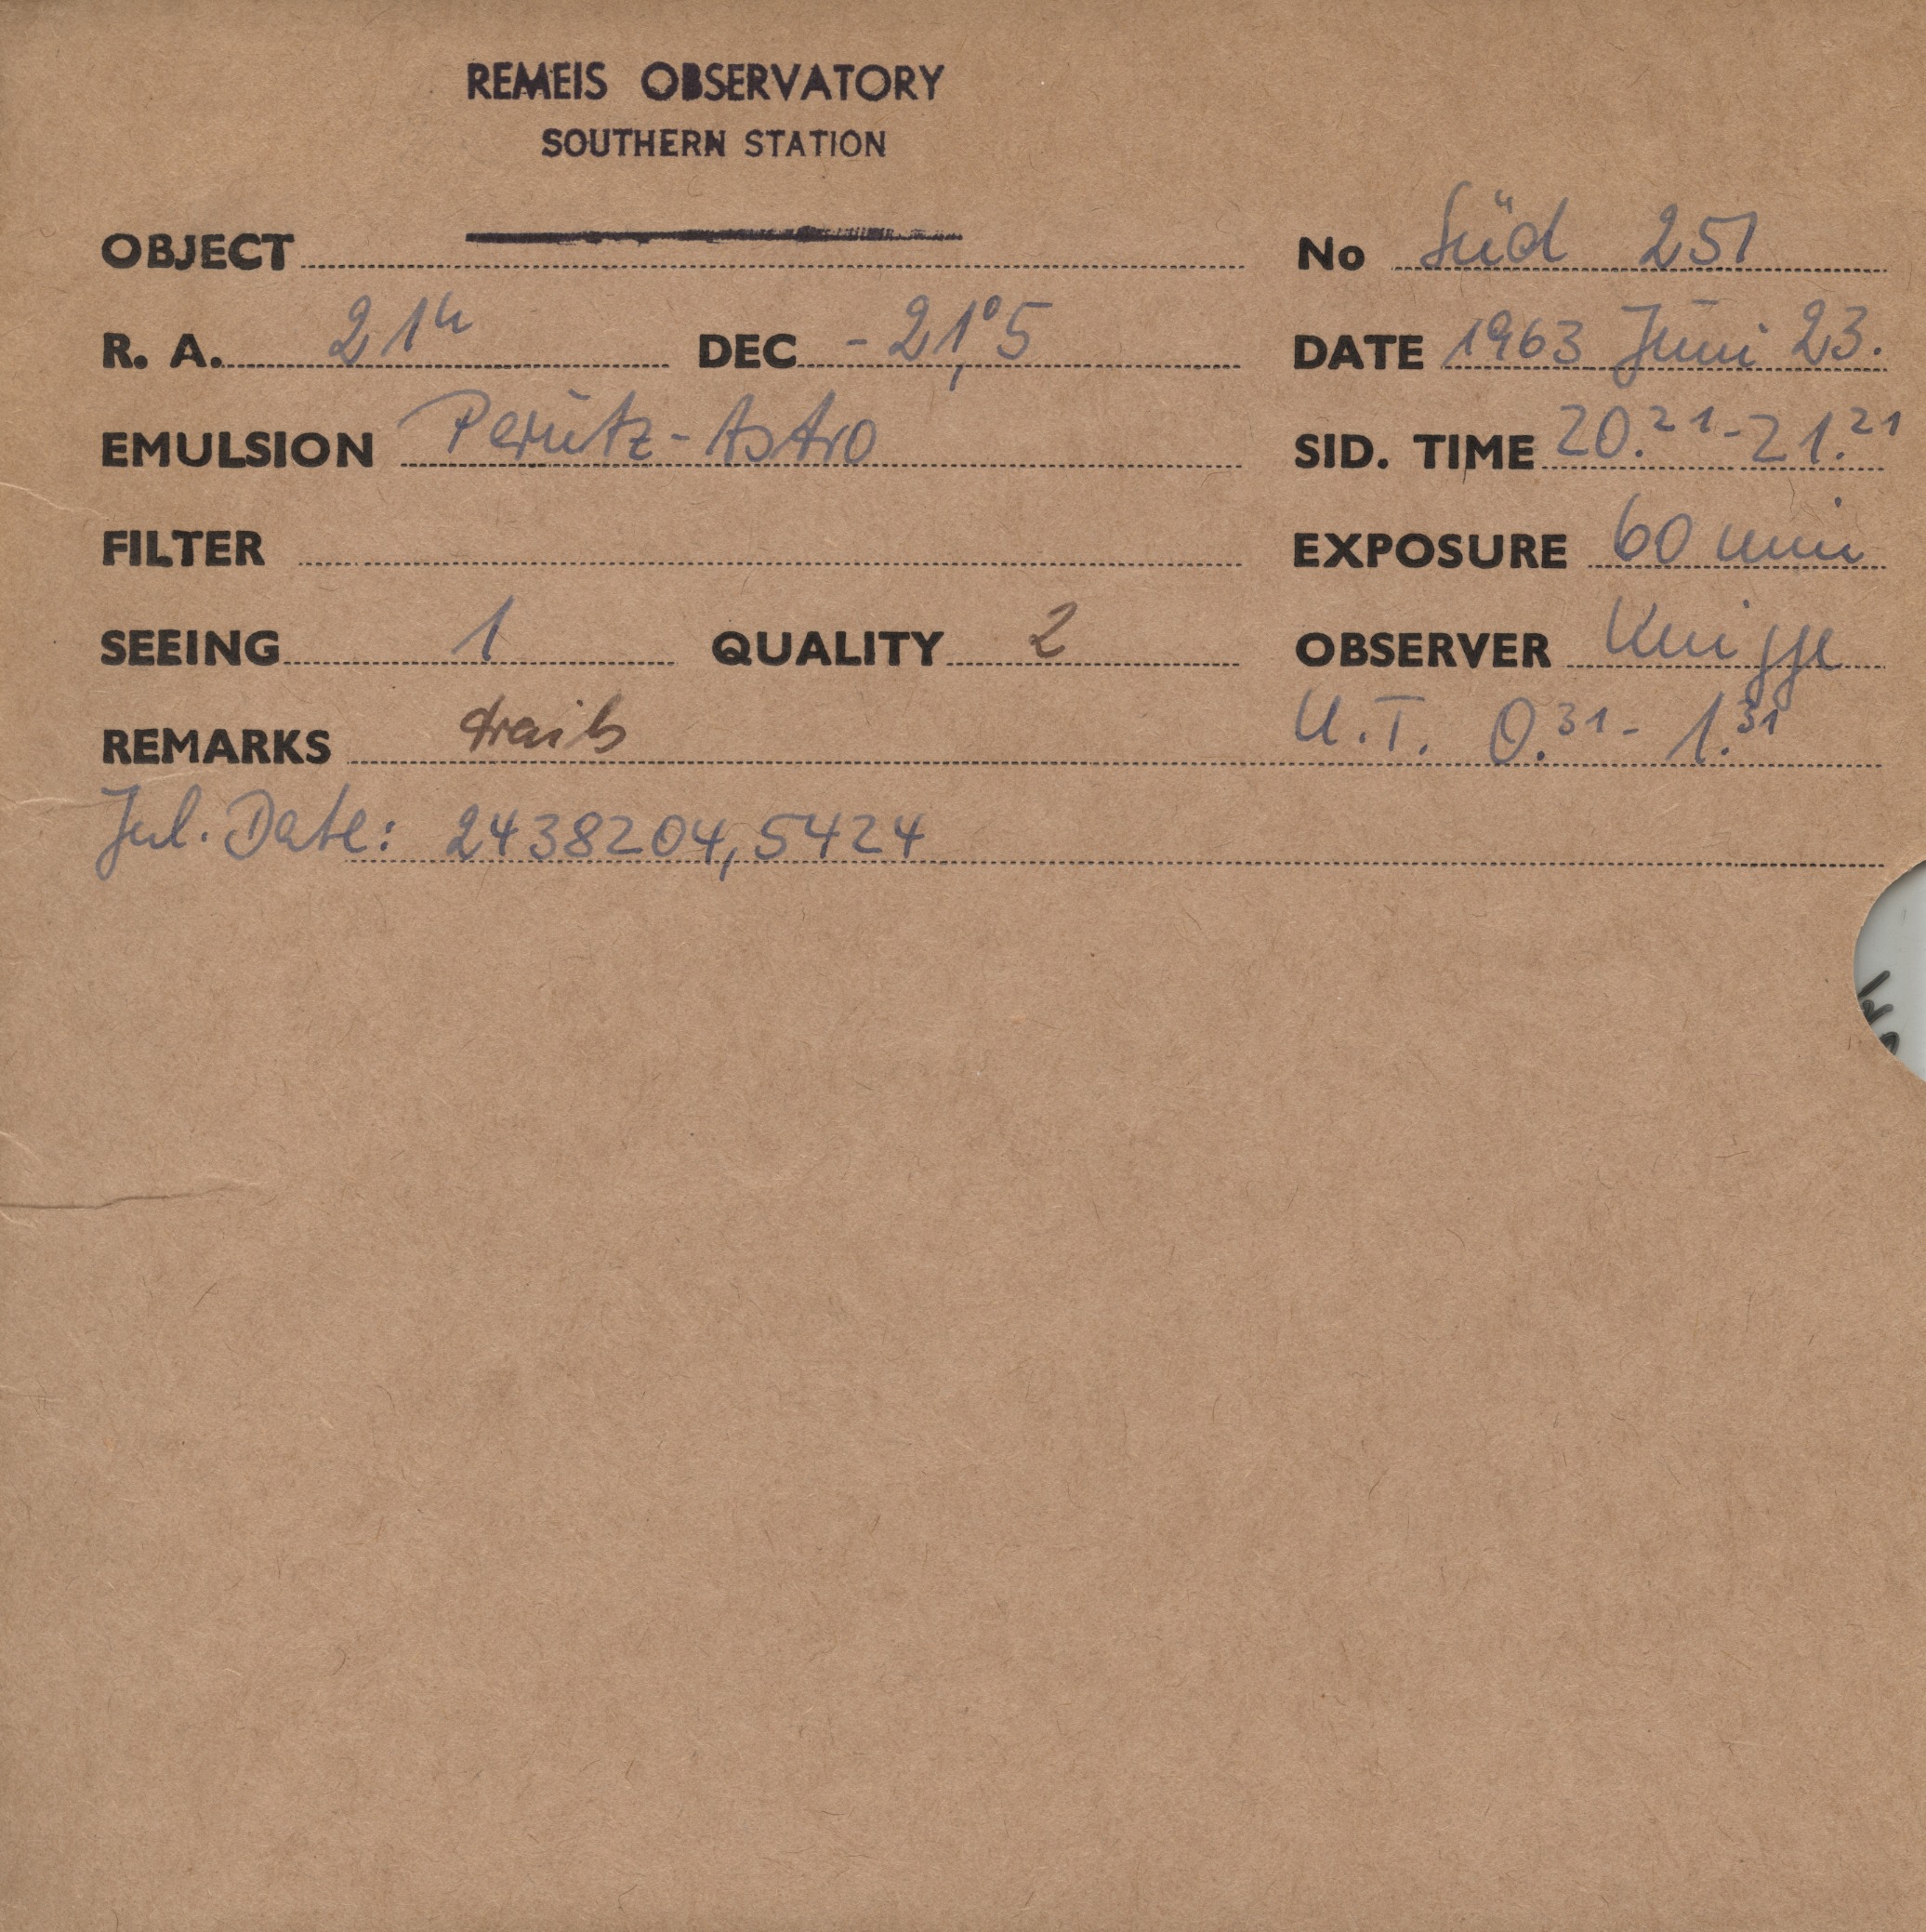 REMEIS OBSERVATORY
SOUTHERN STATION
OBJECT
No Süd 251
R. A. 21h DEC -21,°5
DATE 1963 Juni 23.
EMULSION Perutz-Astro
SID. TIME 20.21-21.21
FILTER
EXPOSURE 60 min
SEEING 1 QUALITY 2
OBSERVER Knigge
REMARKS trails
U.T. 0.31- 1.31
Jul. Date: 2438204,5424